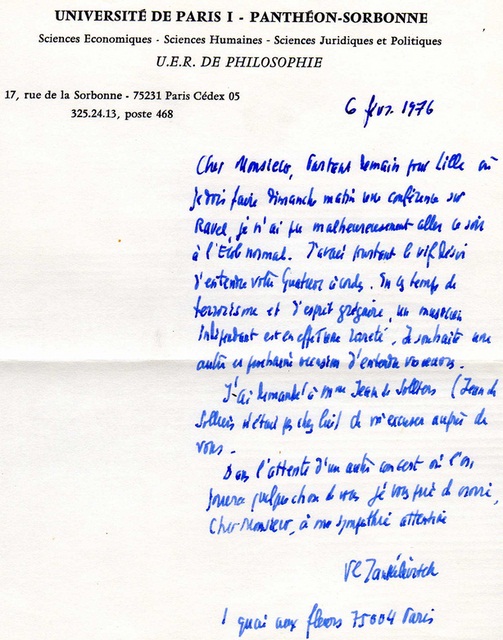 UNIVERSITÉ DE PARIS I - PANTHÉON-SORBONNE
Sciences Economiques - Sciences Humaines - Sciences Juridiques et Politiques
U.E.R. DE PHILOSOPHIE
17, rue de la Sorbonne - 75231 Paris Cédex 05
325.24.13, poste 468
6 févr. 1976
Cher Monsieur, Partant demain pour Lille où
je dois faire dimanche matin une conférence sur
Ravel, je n'ai pu malheureusement aller ce soir
à l'Ecole normale. J'avais pourtant le vif désir
d'entendre votre Quatuor à cordes. En ces temps de
terrorisme et d'esprit grégaire, un musicien
indépendant est en effet une rareté. Je souhaite une
autre et prochaine occasion d'entendre vos œuvres.
J'ai demandé à Mme Jean de Solliers (Jean de
Solliers n'était pas chez lui) de m'excuser auprès de
vous.
Dans l'attente d'un autre concert où l'on
jouera quelque chose de vous je vous prie de croire,
Cher Monsieur, à ma sympathie attentive
Vl Jankélévitch
1 quai aux fleurs 75004 Paris